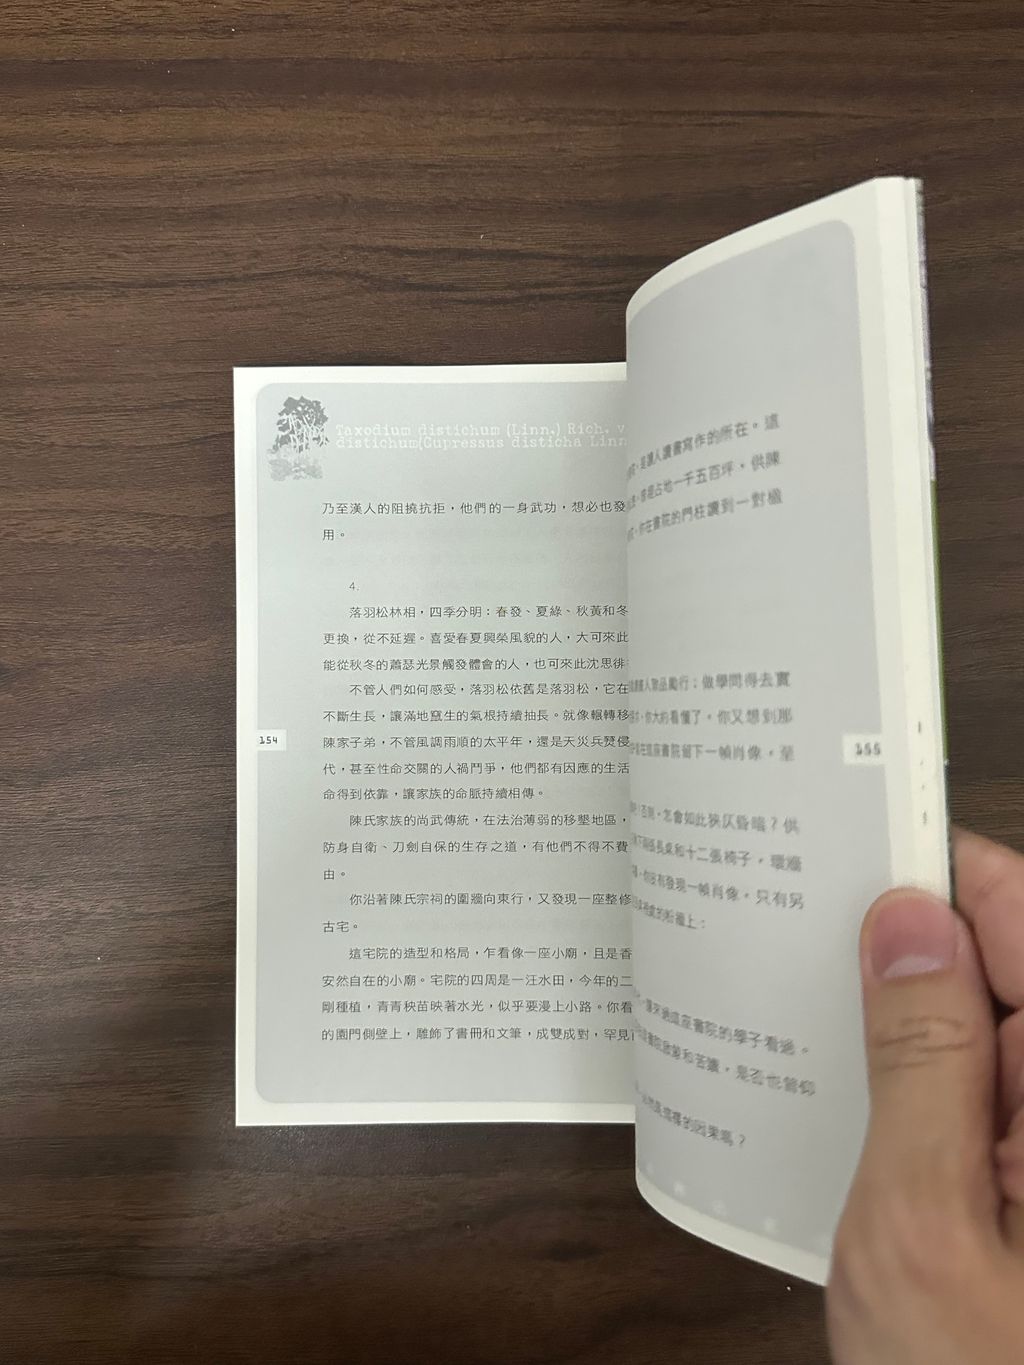 Taxodium distichum (Linn.) Rich. v
distichum(Cupressus disticha Linn
乃至漢人的阻撓抗拒，他們的一身武功，想必也發
用。
4.
落羽松林相，四季分明：春發、夏綠、秋黃和冬
更換，從不延遲。喜愛春夏興榮風貌的人，大可來此
能從秋冬的蕭瑟光景觸發體會的人，也可來此沈思徘
不管人們如何感受，落羽松依舊是落羽松，它在
不斷生長，讓滿地竄生的氣根持續抽長。就像輾轉移
陳家子弟，不管風調雨順的太平年，還是天災兵燹侵
代，甚至性命交關的人禍鬥爭，他們都有因應的生活
命得到依靠，讓家族的命脈持續相傳。
陳氏家族的尚武傳統，在法治薄弱的移墾地區，
防身自衛、刀劍自保的生存之道，有他們不得不費
由。
你沿著陳氏宗祠的圍牆向東行，又發現一座整修
古宅。
這宅院的造型和格局，乍看像一座小廟，且是香
安然自在的小廟。宅院的四周是一汪水田，今年的二
剛種植，青青秧苗映著水光，似乎要漫上小路。你看
的園門側壁上，雕飾了書冊和文筆，成雙成對，罕見
154
是讓人讀書寫作的所在。這
占地一千五百坪，供陳
你在書院的門柱讀到一對楹
人敦品勵行；做學問得去實
你大約看懂了。你又想到那
在這座書院留下一幀肖像，至
否則，怎會如此狹仄昏暗？供
下兩張長桌和十二張椅子，環牆
你沒有發現一幀肖像。只有另
的粉牆上：
來過這座書院的學子看過。
書院啟蒙和苦讀，是否也曾仰
是這樣的因果嗎？
155